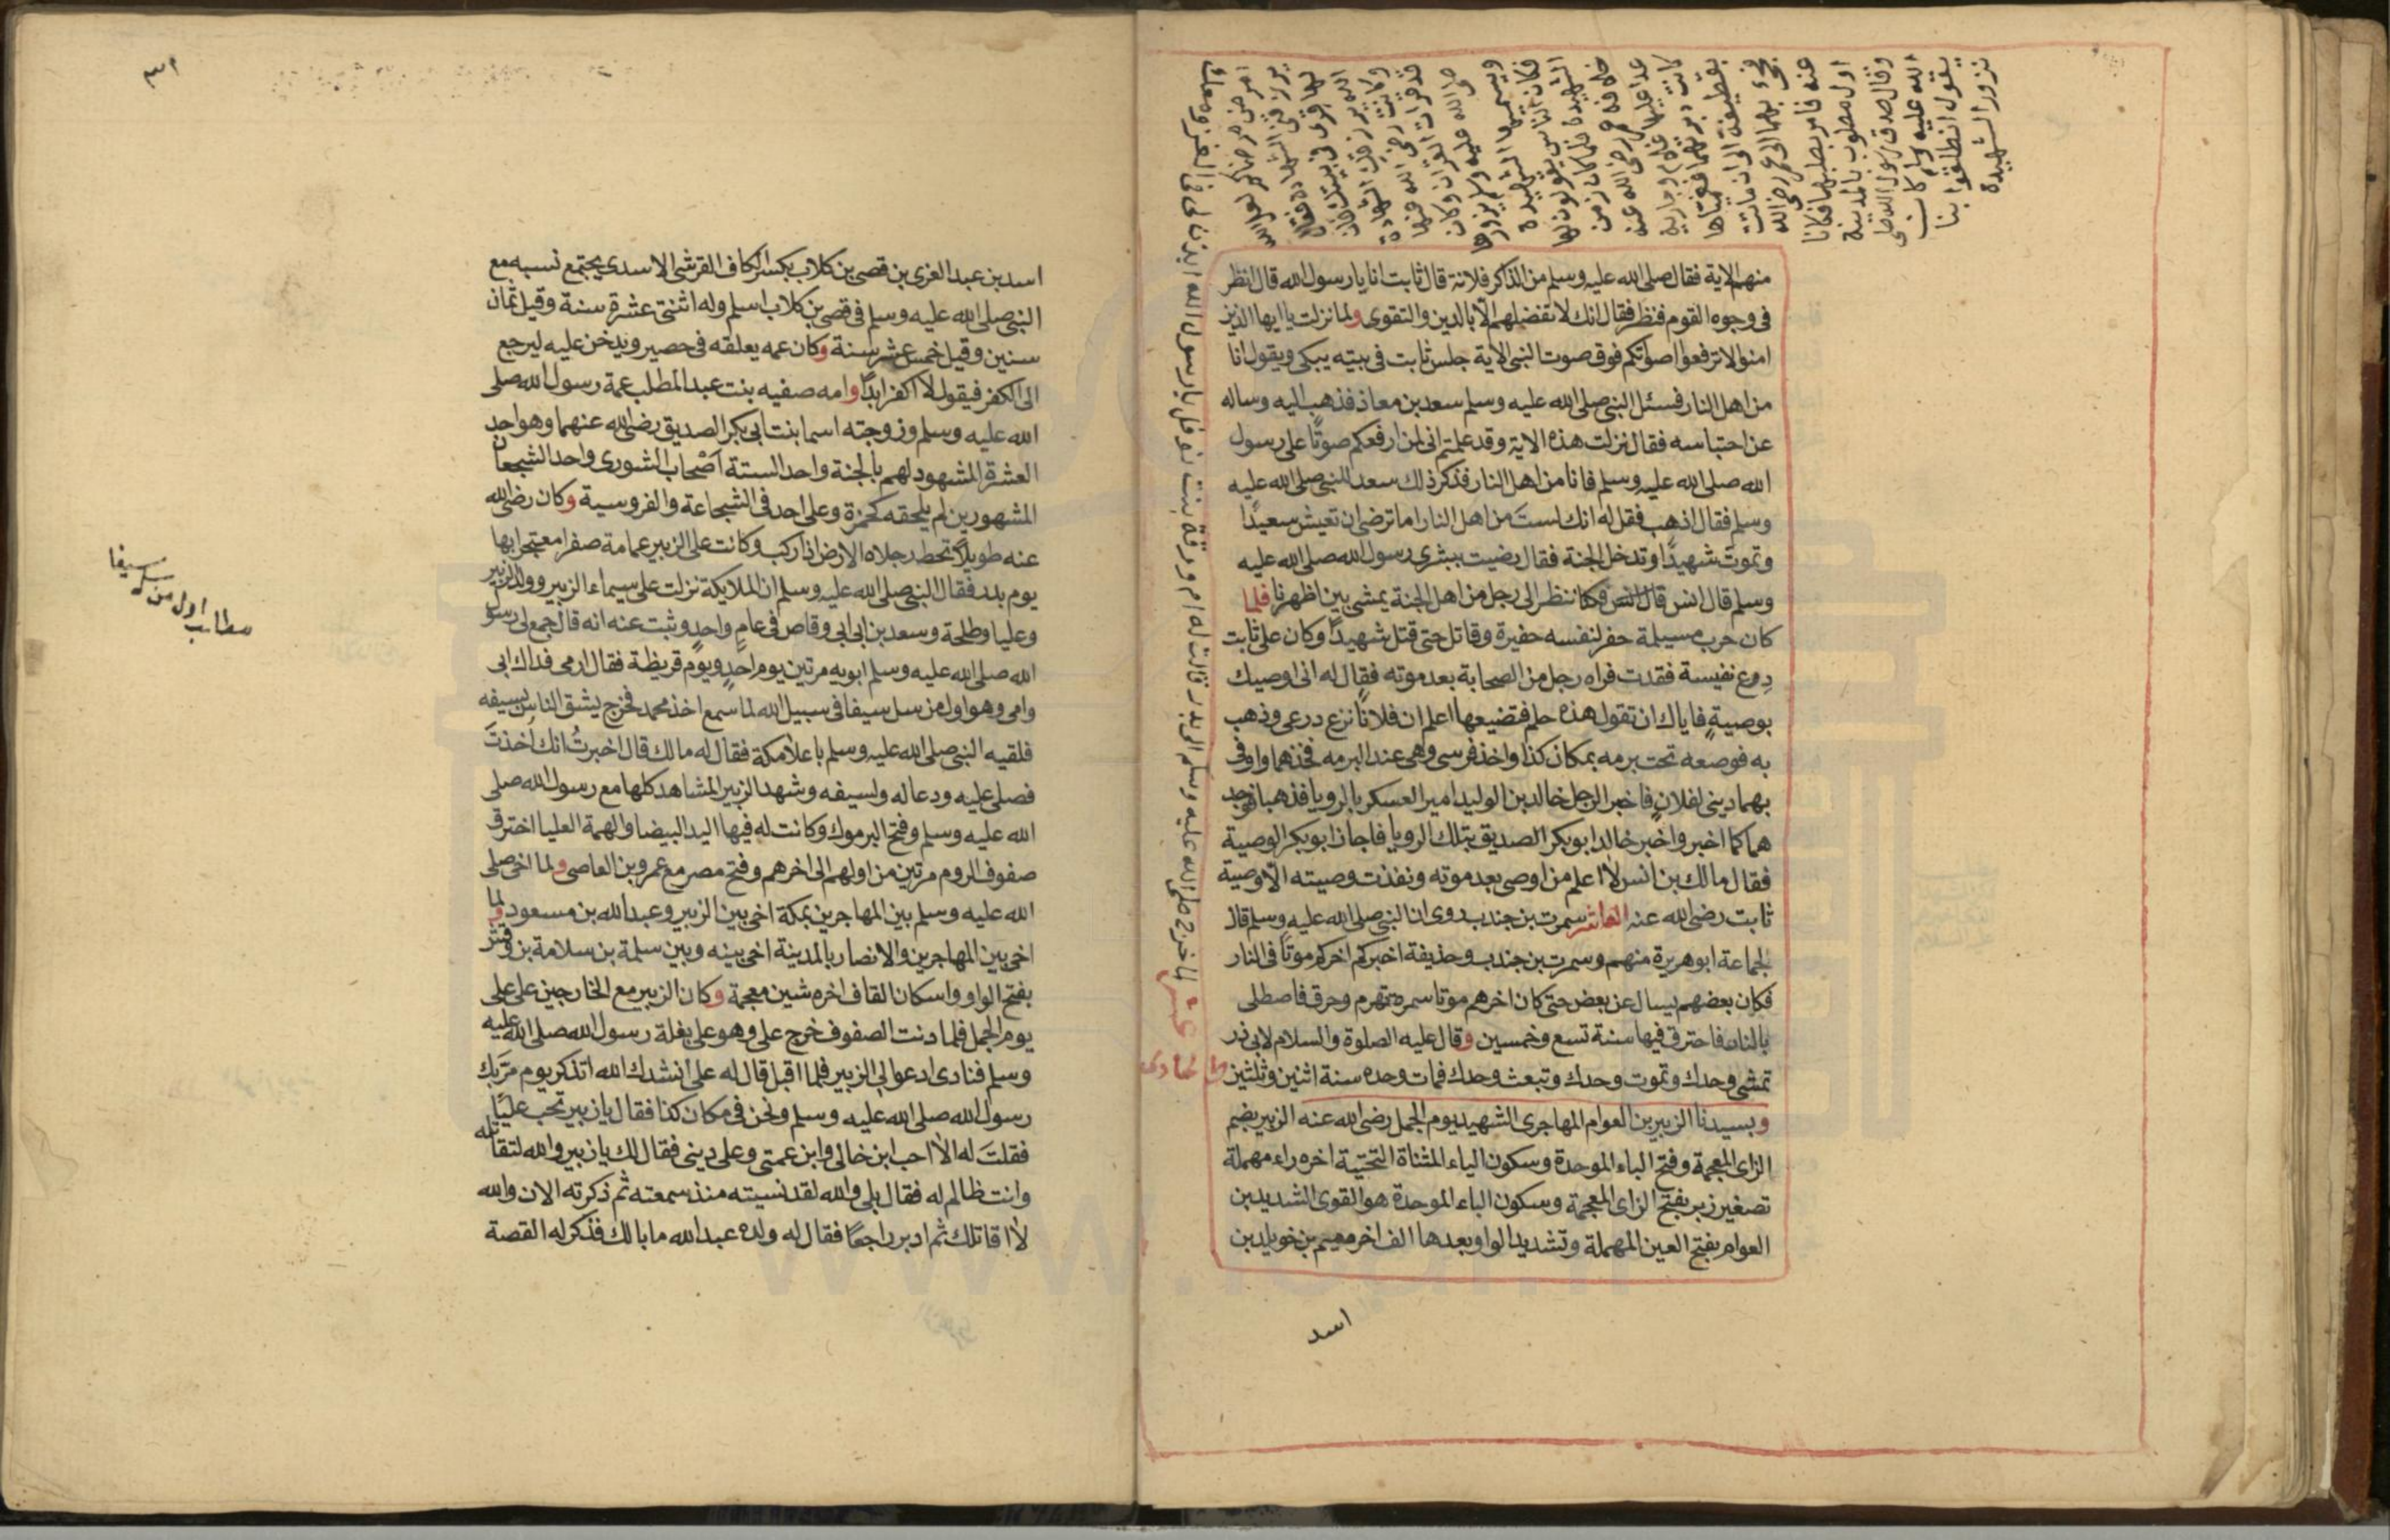 منهم الاية فقال صلى الله عليه وسلم من الذاكر فلانة قال ثابت انا يا رسول الله قال انظر
فى وجوه القوم فنظر فقال انك لا تفضلهم الا بالدين والتقوى ولما نزلت يا ايها الذين
امنوا لا ترفعوا اصواتكم فوق صوت النبى الاية جلس ثابت فى بيته يبكى ويقول انا
من اهل النار فسئل النبى صلى الله عليه وسلم سعد بن معاذ فذهب اليه وساله
عن احتباسه فقال نزلت هذه الاية وقد علمتم انى لمن ارفعكم صوتًا على رسول
الله صلى الله عليه وسلم فانا من اهل النار فذكر ذلك سعد للنبى صلى الله عليه
وسلم فقال اذهب فقل له انك لستَ من اهل النار اما ترضى ان تعيش سعيدًا
وتموتَ شهيدًا وتدخل الجنة فقال رضيت ببشرى رسول الله صلى الله عليه
وسلم قال انس فكنا ننظر الى رجل من اهل الجنة يمشى بين اظهرنا فلما
كان حرب مسيلمة حفر لنفسه حفيرة وقاتل حتى قتل شهيدًا وكان على ثابت
درع نفيسة فقدت فراه رجل من الصحابة بعد موته فقال له انى اوصيك
بوصيةٍ فاياك ان تقول هذه حلم فتضيعها اعلم ان فلانًا نزع درعى وذهب
به فوضعه تحت برمه بمكان كذا واخذ فرسى وهى عند البرمه فخذهما واوفى
بهما دينى لفلانٍ فاخبر الرجل خالد بن الوليد امير العسكر بالرويا فذهبا فوجد
هما كما اخبر واخبر خالد ابو بكر الصديق بتلك الرويا فاجاز ابو بكر الوصية
فقال مالك بن انس لا اعلم من اوصى بعد موته ونفذت وصيته الا وصية
ثابت رضى الله عنه العاشر سمرت بن جندب روى ان النبى صلى الله عليه وسلم قال
لجماعة ابو هريرة منهم وسمرت بن جندب وحذيفة اخبركم اخركم موتًا فى النار
فكان بعضهم يسال عن بعض حتى كان اخرهم موتا سمره فتهرم وحرق فاصطلى
بالنار فاحترق فيها سنة تسع وخمسين وقال عليه الصلوة والسلام لابى ذر
تمشى وحدك وتموت وحدك وتبعث وحدك فمات وحده سنة اثنين وثلثين
وبسيدنا الزبير بن العوام المهاجرى الشهيد يوم الجمل رضى الله عنه الزبير بضم
الزاى المعجمة وفتح الباء الموحدة وسكون الياء المثناة التحتية اخره راء مهملة
تصغير زبر بفتح الزاى المعجمة وسكون الباء الموحدة هو القوى الشديد بن
العوام بفتح العين المهملة وتشديد الواو وبعدها الف اخره ميم بن خويلد بن
اسد
نزور الشهيدة
يقول انطلقوا بنا
الله عليه وسلم كان
وقال صدق رسول الله صلى
اول مصلوب بالمدينة
عنه فامر بصلبهما فكانا
فجئ بهما الى عمر رضى الله
بقطيفة الى ان ماتت
كانت دبرتهما فغمتاها
عدا عليها غلام وجارية
خلافة عمر رضى الله عنه
الشهيدة فلما كان زمن
فكان الناس يقولون لها
ويسميها الشهيدة
صلى الله عليه وسلم يزورها
قد قرات القران وكان
وكانت رضى الله عنها
لها قرى فى بيتك فان
لما خرج صلى الله عليه وسلم الى بدر قالت له ام ورقة بنت نوفل يا رسول الله ايذن لى فى الغزو معك
اسد بن عبد العزى بن قصى بن كلاب بكسر الكاف القرشى الاسدى يجتمع نسبه مع
النبى صلى الله عليه وسلم فى قصى بن كلاب اسلم وله اثنتى عشرة سنة وقيل ثمان
سنين وقيل خمس عشر سنة وكان عمه يعلقه فى حصير ويدخن عليه ليرجع
الى الكفر فيقول لا اكفر ابدًا وامه صفيه بنت عبد المطلب عمة رسول الله صلى
الله عليه وسلم وزوجته اسما بنت ابى بكر الصديق رضى الله عنهما وهو احد
العشرة المشهود لهم بالجنة واحد الستة اصحاب الشورى واحد الشجعان
المشهورين لم يلحقه كحمزة وعلى احد فى الشجاعة والفروسية وكان رضى الله
عنه طويلاً تخط رجلاه الارض اذا ركب وكانت على الزبير عمامة صفرا معتجرا بها
يوم بدر فقال النبى صلى الله عليه وسلم ان الملايكة نزلت على سيماء الزبير وولد الزبير
وعليا وطلحة وسعد بن ابى ابى وقاص فى عامٍ واحدٍ وثبت عنه انه قال جمع لى رسول
الله صلى الله عليه وسلم ابويه مرتين يوم احدٍ ويوم قريظة فقال ارمى فداك ابى
وامى وهو اول من سل سيفا فى سبيل الله لما سمع اخذ محمد فخرج يشق الناس بسيفه
فلقيه النبى صلى الله عليه وسلم باعلا مكة فقال له مالك قال اخبرتُ انك اخذتَ
فصلى عليه ودعا له ولسيفه وشهد الزبير المشاهد كلها مع رسول الله صلى
الله عليه وسلم وفتح اليرموك وكانت له فيها اليد البيضا والهمة العليا اخترق
صفوف الروم مرتين من اولهم الى اخرهم وفتح مصر مع عمرو بن العاصى ولما اخى صلى
الله عليه وسلم بين المهاجرين بمكة اخى بين الزبير وعبد الله بن مسعود ولما
اخى بين المهاجرين والانصار بالمدينة اخى بينه وبين سلمة بن سلامة بن وقش
بفتح الواو واسكان القاف اخره شين معجمة وكان الزبير مع الخارجين على على
يوم الجمل فلما دنت الصفوف خرج على وهو على بغلة رسول الله صلى الله عليه
وسلم فنادى ادعوا لى الزبير فلما اقبل قال له على انشدك الله اتذكر يوم مر بك
رسول الله صلى الله عليه وسلم ونحن فى مكان كذا فقال يا زبير تحب عليًا
فقلتَ له الا احب ابن خالى وابن عمتى وعلى دينى فقال لك يا زبير والله لتقاتله
وانت ظالم له فقال بلى والله لقد نسيته منذ سمعته ثم ذكرته الان والله
لا اقاتلك ثم ادبر راجعًا فقال له ولده عبد الله ما بالك فذكر له القصة
مطلب اول من سل سيفا